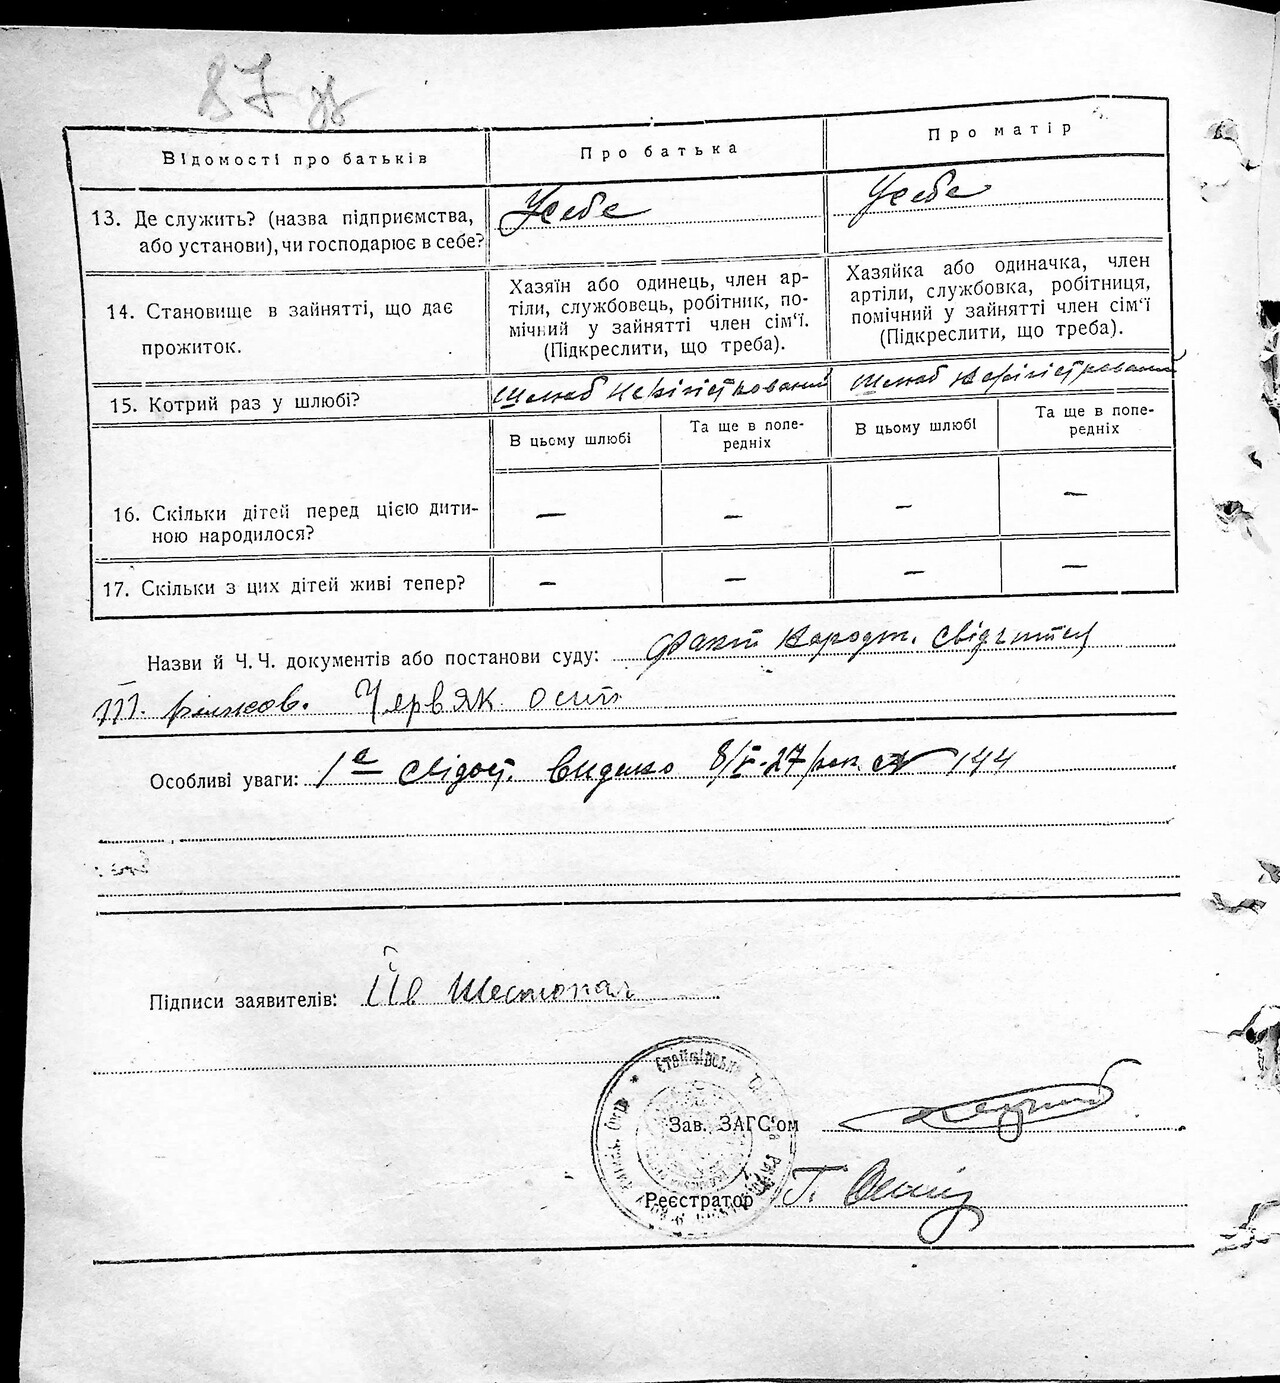 87 зв
Відомості про батьків
Про батька
Про матір
13. Де служить? (назва підприємства, або установи), чи господарює в себе?
У себе
У себе
14. Становище в зайнятті, що дає прожиток.
Хазяїн або одинець, член ар-
тіли, службовець, робітник, по-
мічний у зайнятті член сім‘ї.
(Підкреслити, що треба).
Хазяйка або одиначка, член
артіли, службовка, робітниця,
помічний у зайнятті член сім‘ї
(Підкреслити, що треба).
15. Котрий раз у шлюбі?
Шлюб
Шлюб
В цьому шлюбі
Та ще в попе-
редніх
В цьому шлюбі
Та ще в попе-
редніх
16. Скільки дітей перед цією дити-
ною народилося?
— — — —
17. Скільки з цих дітей живі тепер?
— — — —
Назви й Ч. Ч. документів або постанови суду: Факт народж.
Червяк
Особливі уваги: 1е свідоц. видано 144
Підписи заявителів: Шестопал
Зав. ЗАГС‘ом
Реєстратор Г.